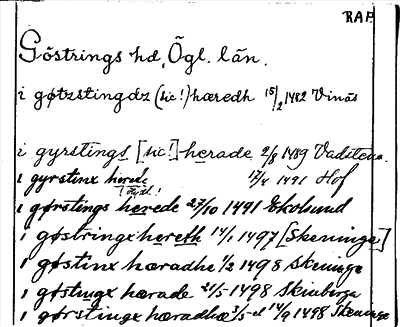 RAP
Göstrings hd, Ögl. län.
i gøtzstingdz (sic!) hæredh 15/2 1482 Vinäs
i gyrstings [sic!] herade 2/8 1489 Vadstena.
i gyrstinx hered 17/4 1491 Hof
i gørstings herede 27/10 1491 Ekolsund
i gøstringx hereth 14/1 1497 [Skeninge]
i gøstinx hæradhe 1/2 1498 Skeninge
i gøstingx hærade 21/5 1498
i gørstingx hæradhæ 3/5 el 14/9 1498 Skeninge